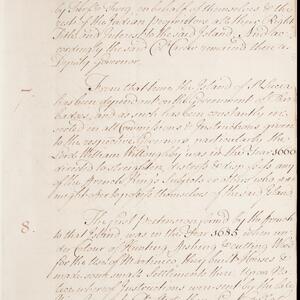 by Thos. & King, on behalf of themselves & the
rest of the Indian Proprietors all their Right
Title and Interest to the said Island, And ac-
cordingly the said Cooke remained there a
Deputy Governor.
7
From that time the Island of St. Lucia
has been dependent on the Government of Bar-
badoes, and as such has been constantly in-
serted in all Commissions & Instructions given
to the respective Governors particularly the
Lord William Willoughby was in the Year 1666
directed to any
of the French King's Subjects or others who
might possess themselves of the said Island.
8.
The first Pretension formed by the French
to that Island was in the Year 1685 when un-
der Colour of Hunting, Fishing & Cutting Wood
for the Use of Martinico, they built Houses &
made some small Settlements there Upon No-
tice whereof Instructions were sent by the late